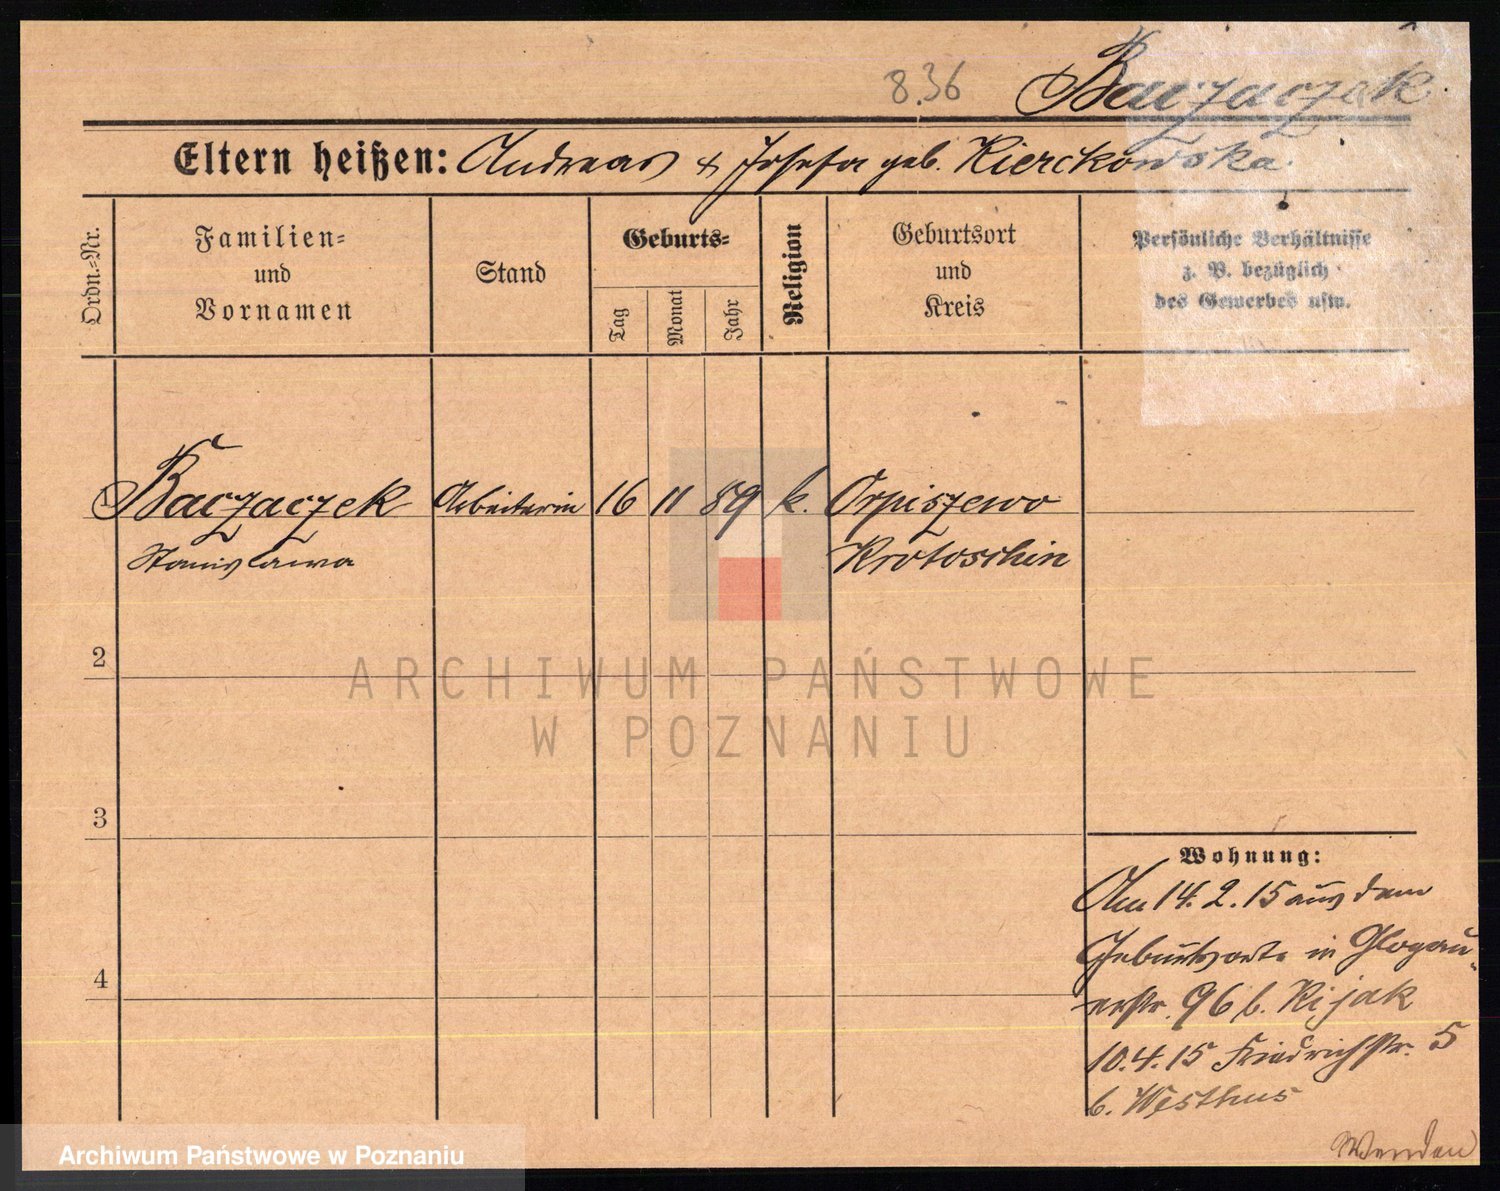 8.36
Baczaczek.
Eltern heißen: Andreas & Josefa geb. Kierckowska.
Ordn.-Nr.
Familien- und Vornamen
Stand
Geburts-
Tag
Monat
Jahr
Religion
Geburtsort und Kreis
Persönliche Verhältnisse
z. B. bezüglich
des Gewerbes usw.
1 Baczaczek Arbeiterin 16 11 89 k. Orpiszewo
Stanislawa Krotoschin
2
ARCHIWUM PAŃSTWOWE
W POZNANIU
3
4
Wohnung:
Am 14.2.15 aus dem
Geburtsorte in Glogau-
erstr. 96 b. Kijak
10.4.15 Friedrichstr. 5
b. Westhus
Wenden
Archiwum Państwowe w Poznaniu